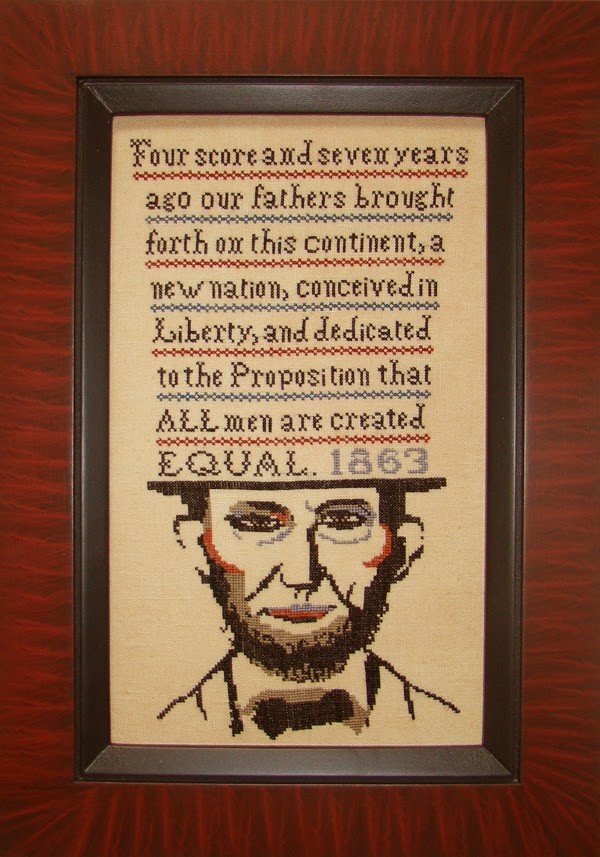 Four score and seven years
ago our fathers brought
forth on this continent, a
new nation, conceived in
Liberty, and dedicated
to the Proposition that
ALL men are created
EQUAL. 1863